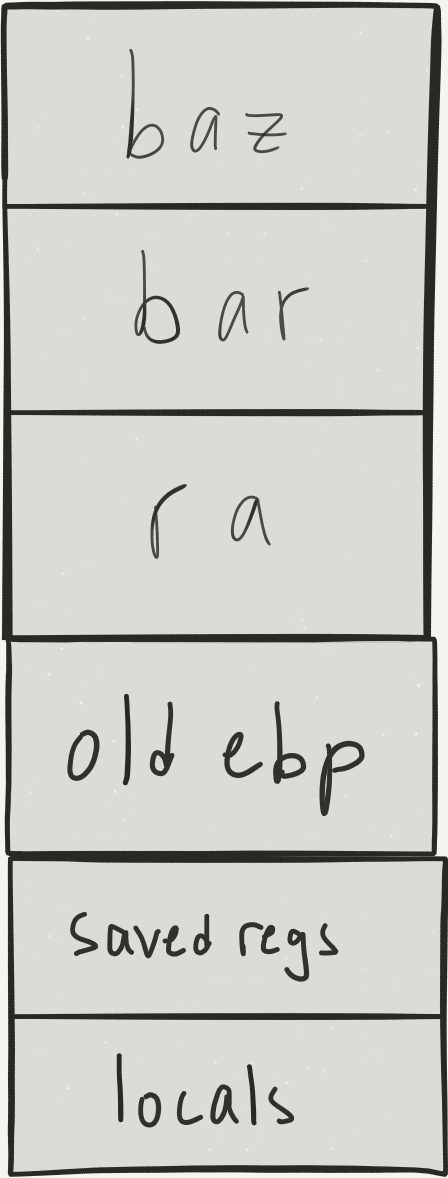 baz
bar
ra
old ebp
saved regs
locals